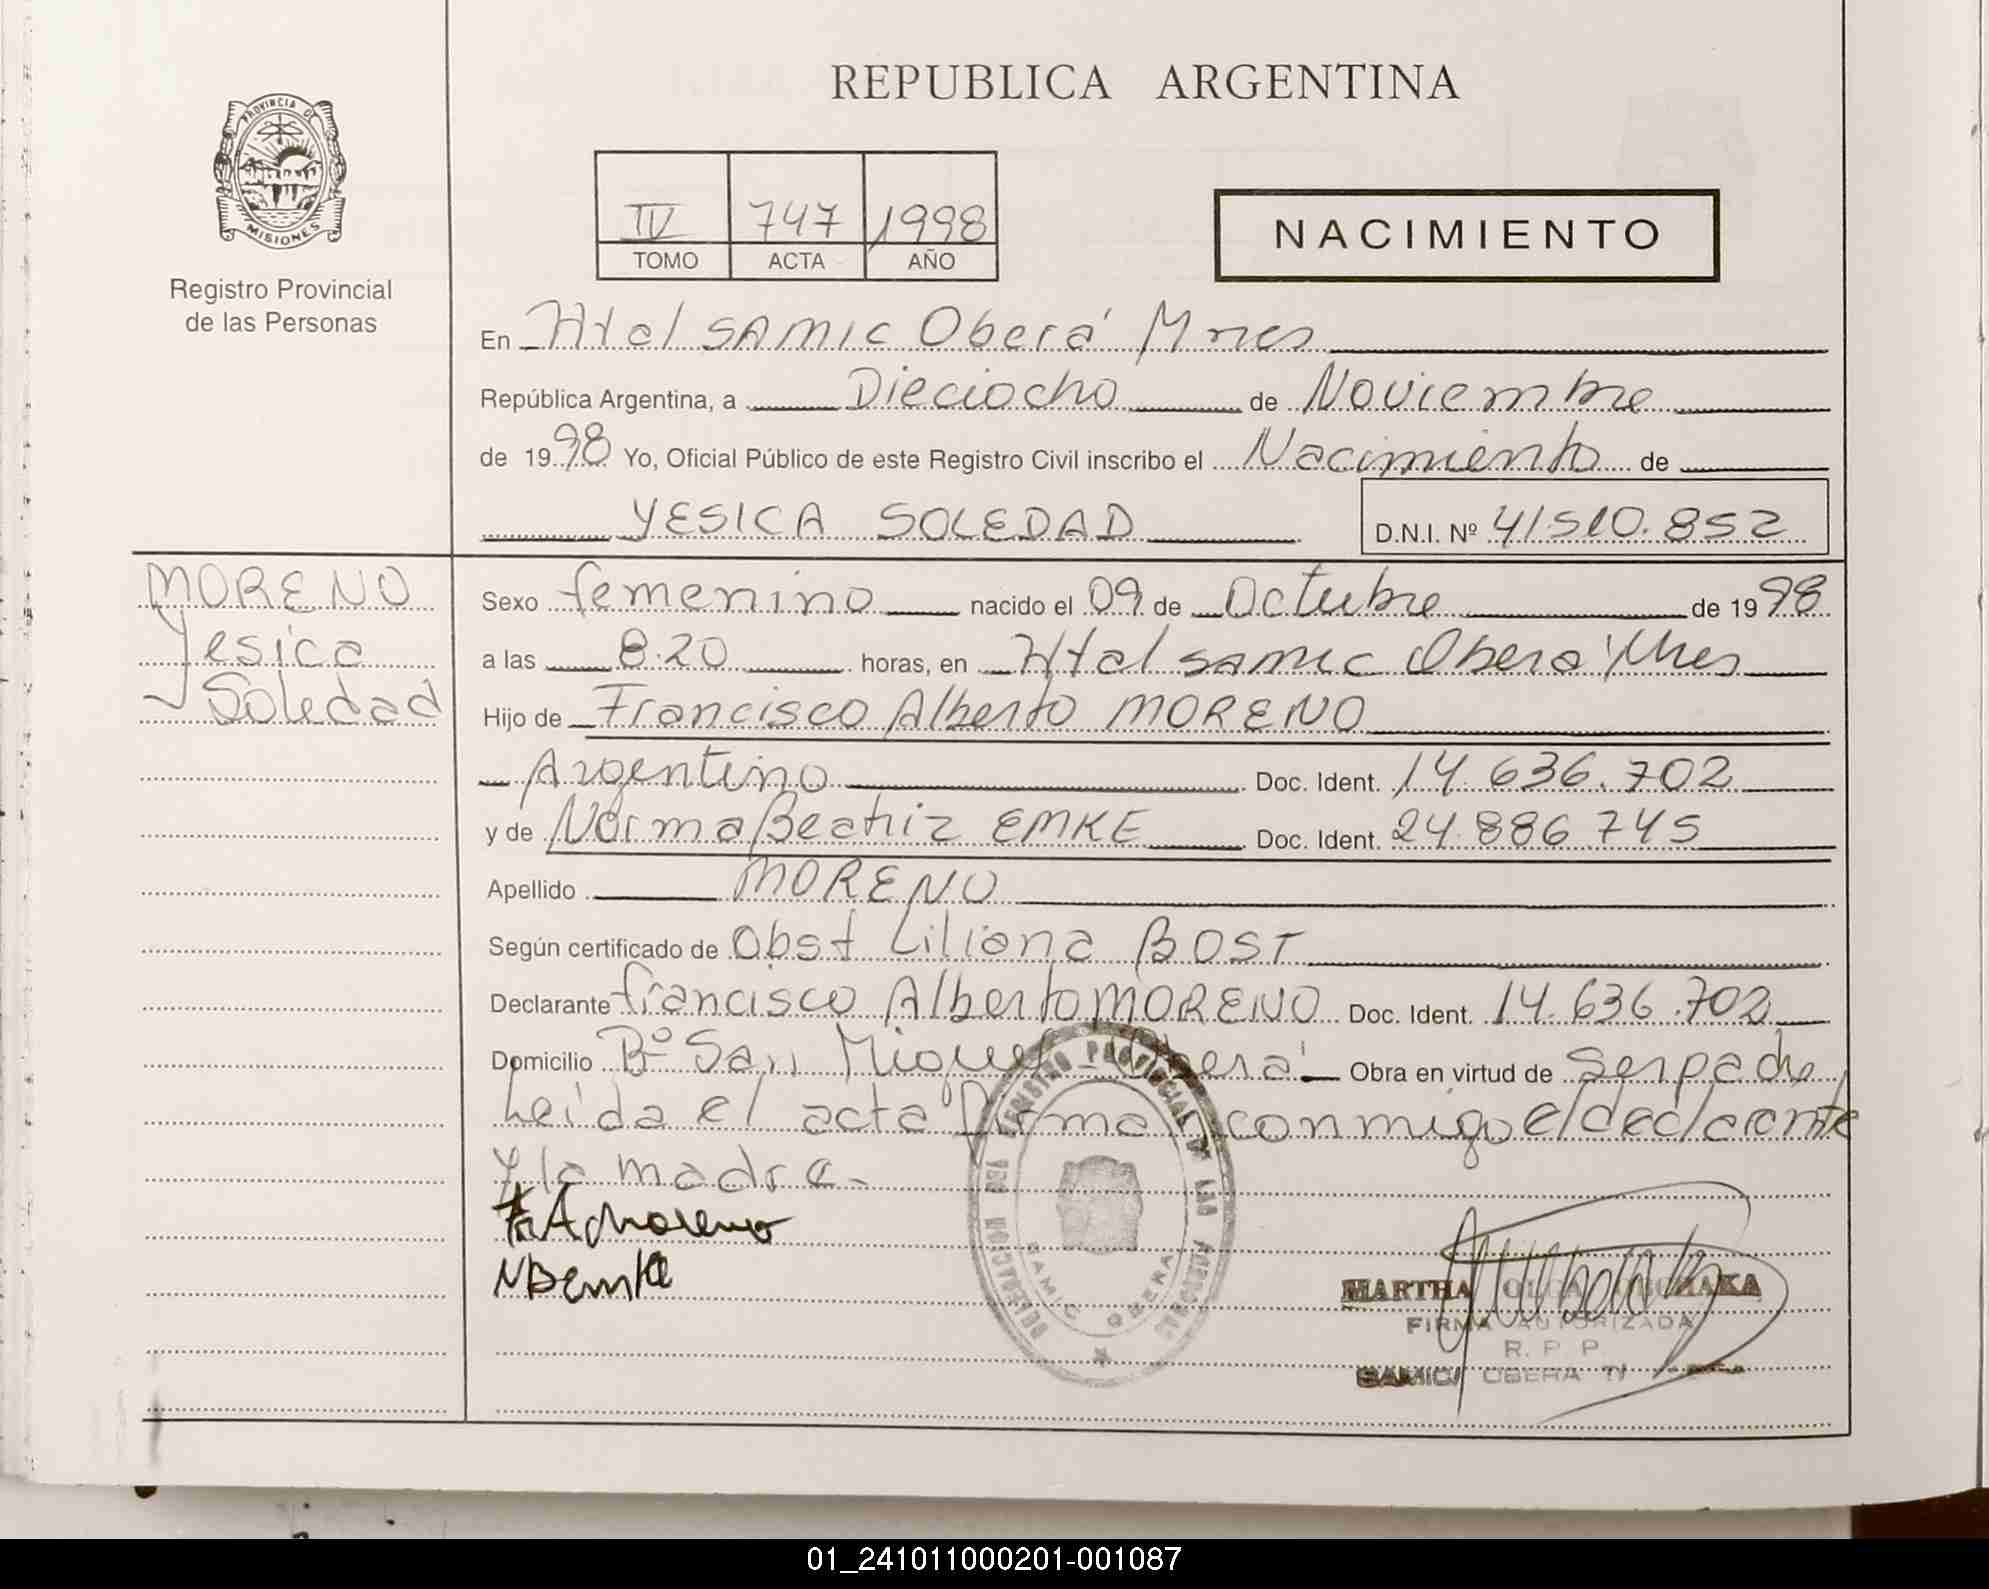 REPUBLICA ARGENTINA
PROVINCIA DE
MISIONES
Registro Provincial
de las Personas
IV 747 1998
TOMO ACTA AÑO
NACIMIENTO
En Htal SAMIC Oberá Mnes
República Argentina, a Dieciocho de Noviembre
de 1998 Yo, Oficial Público de este Registro Civil inscribo el Nacimiento de
YESICA SOLEDAD D.N.I. Nº 41.510.852
MORENO
Yesica
Soledad
Sexo femenino nacido el 09 de Octubre de 1998
a las 8.20 horas, en Htal samic Oberá Mnes
Hijo de Francisco Alberto MORENO
Argentino Doc. Ident. 14.636.702
y de Norma Beatriz EMKE Doc. Ident. 24.886.745
Apellido MORENO
Según certificado de Obst Liliana BOST
Declarante Francisco Alberto MORENO Doc. Ident. 14.636.702
Domicilio Bº San Miguel Oberá Obra en virtud de ser padre
Leída el acta firman conmigo el declarante
y la madre.
FAMoreno
NBEmke
REGISTRO PROVINCIAL DE LAS PERSONAS
DELEGACION
SAMIC OBERA
MARTHA OLGA
FIRMA AUTORIZADA
R. P. P.
SAMIC OBERA
01_241011000201-001087